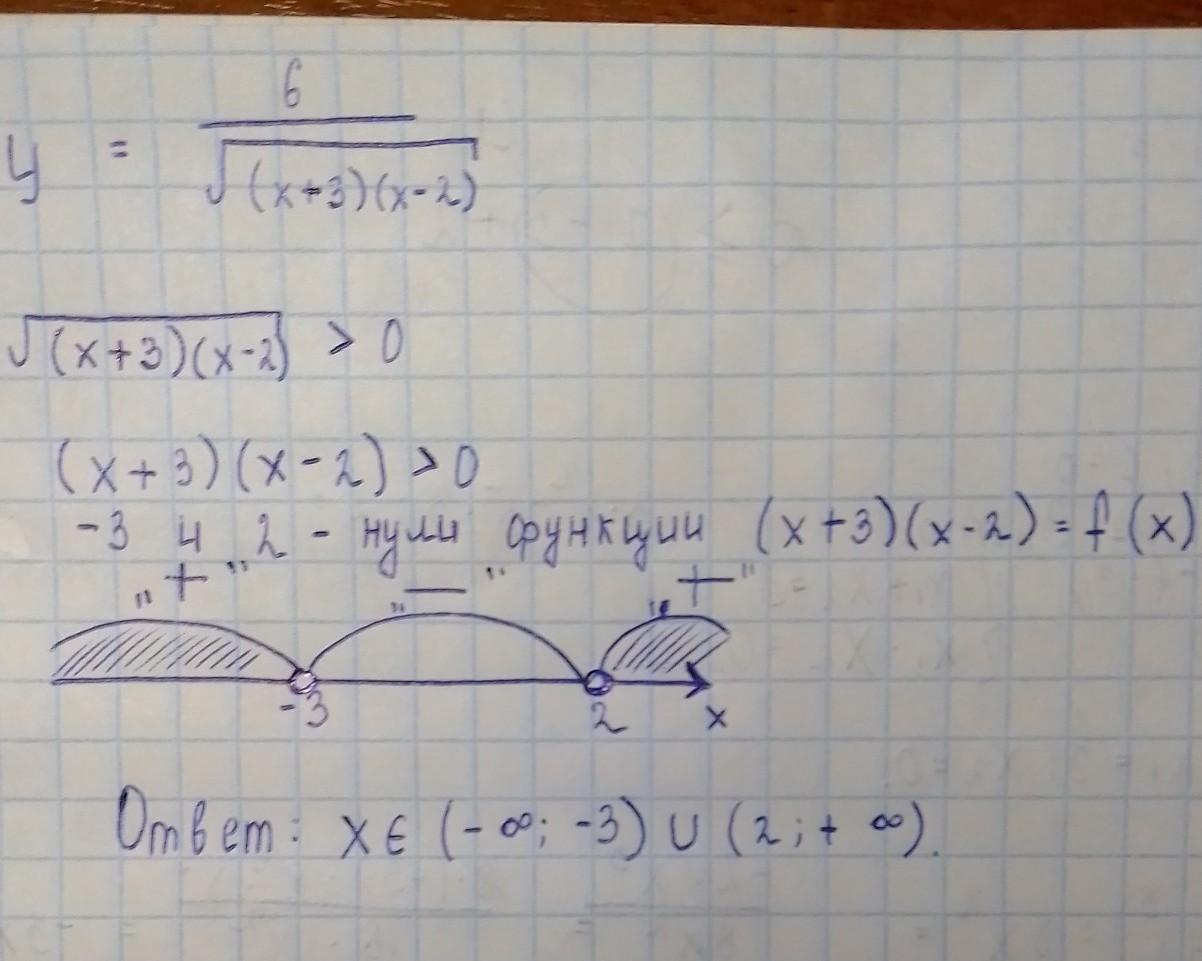 y = 6 / √(x+3)(x-2)
√(x+3)(x-2) > 0
(x+3)(x-2) > 0
-3 и 2 - нули функции (x+3)(x-2) = f(x)
„+” „—” „+”
-3 2 x
Ответ: x ∈ (-∞; -3) ∪ (2; +∞).